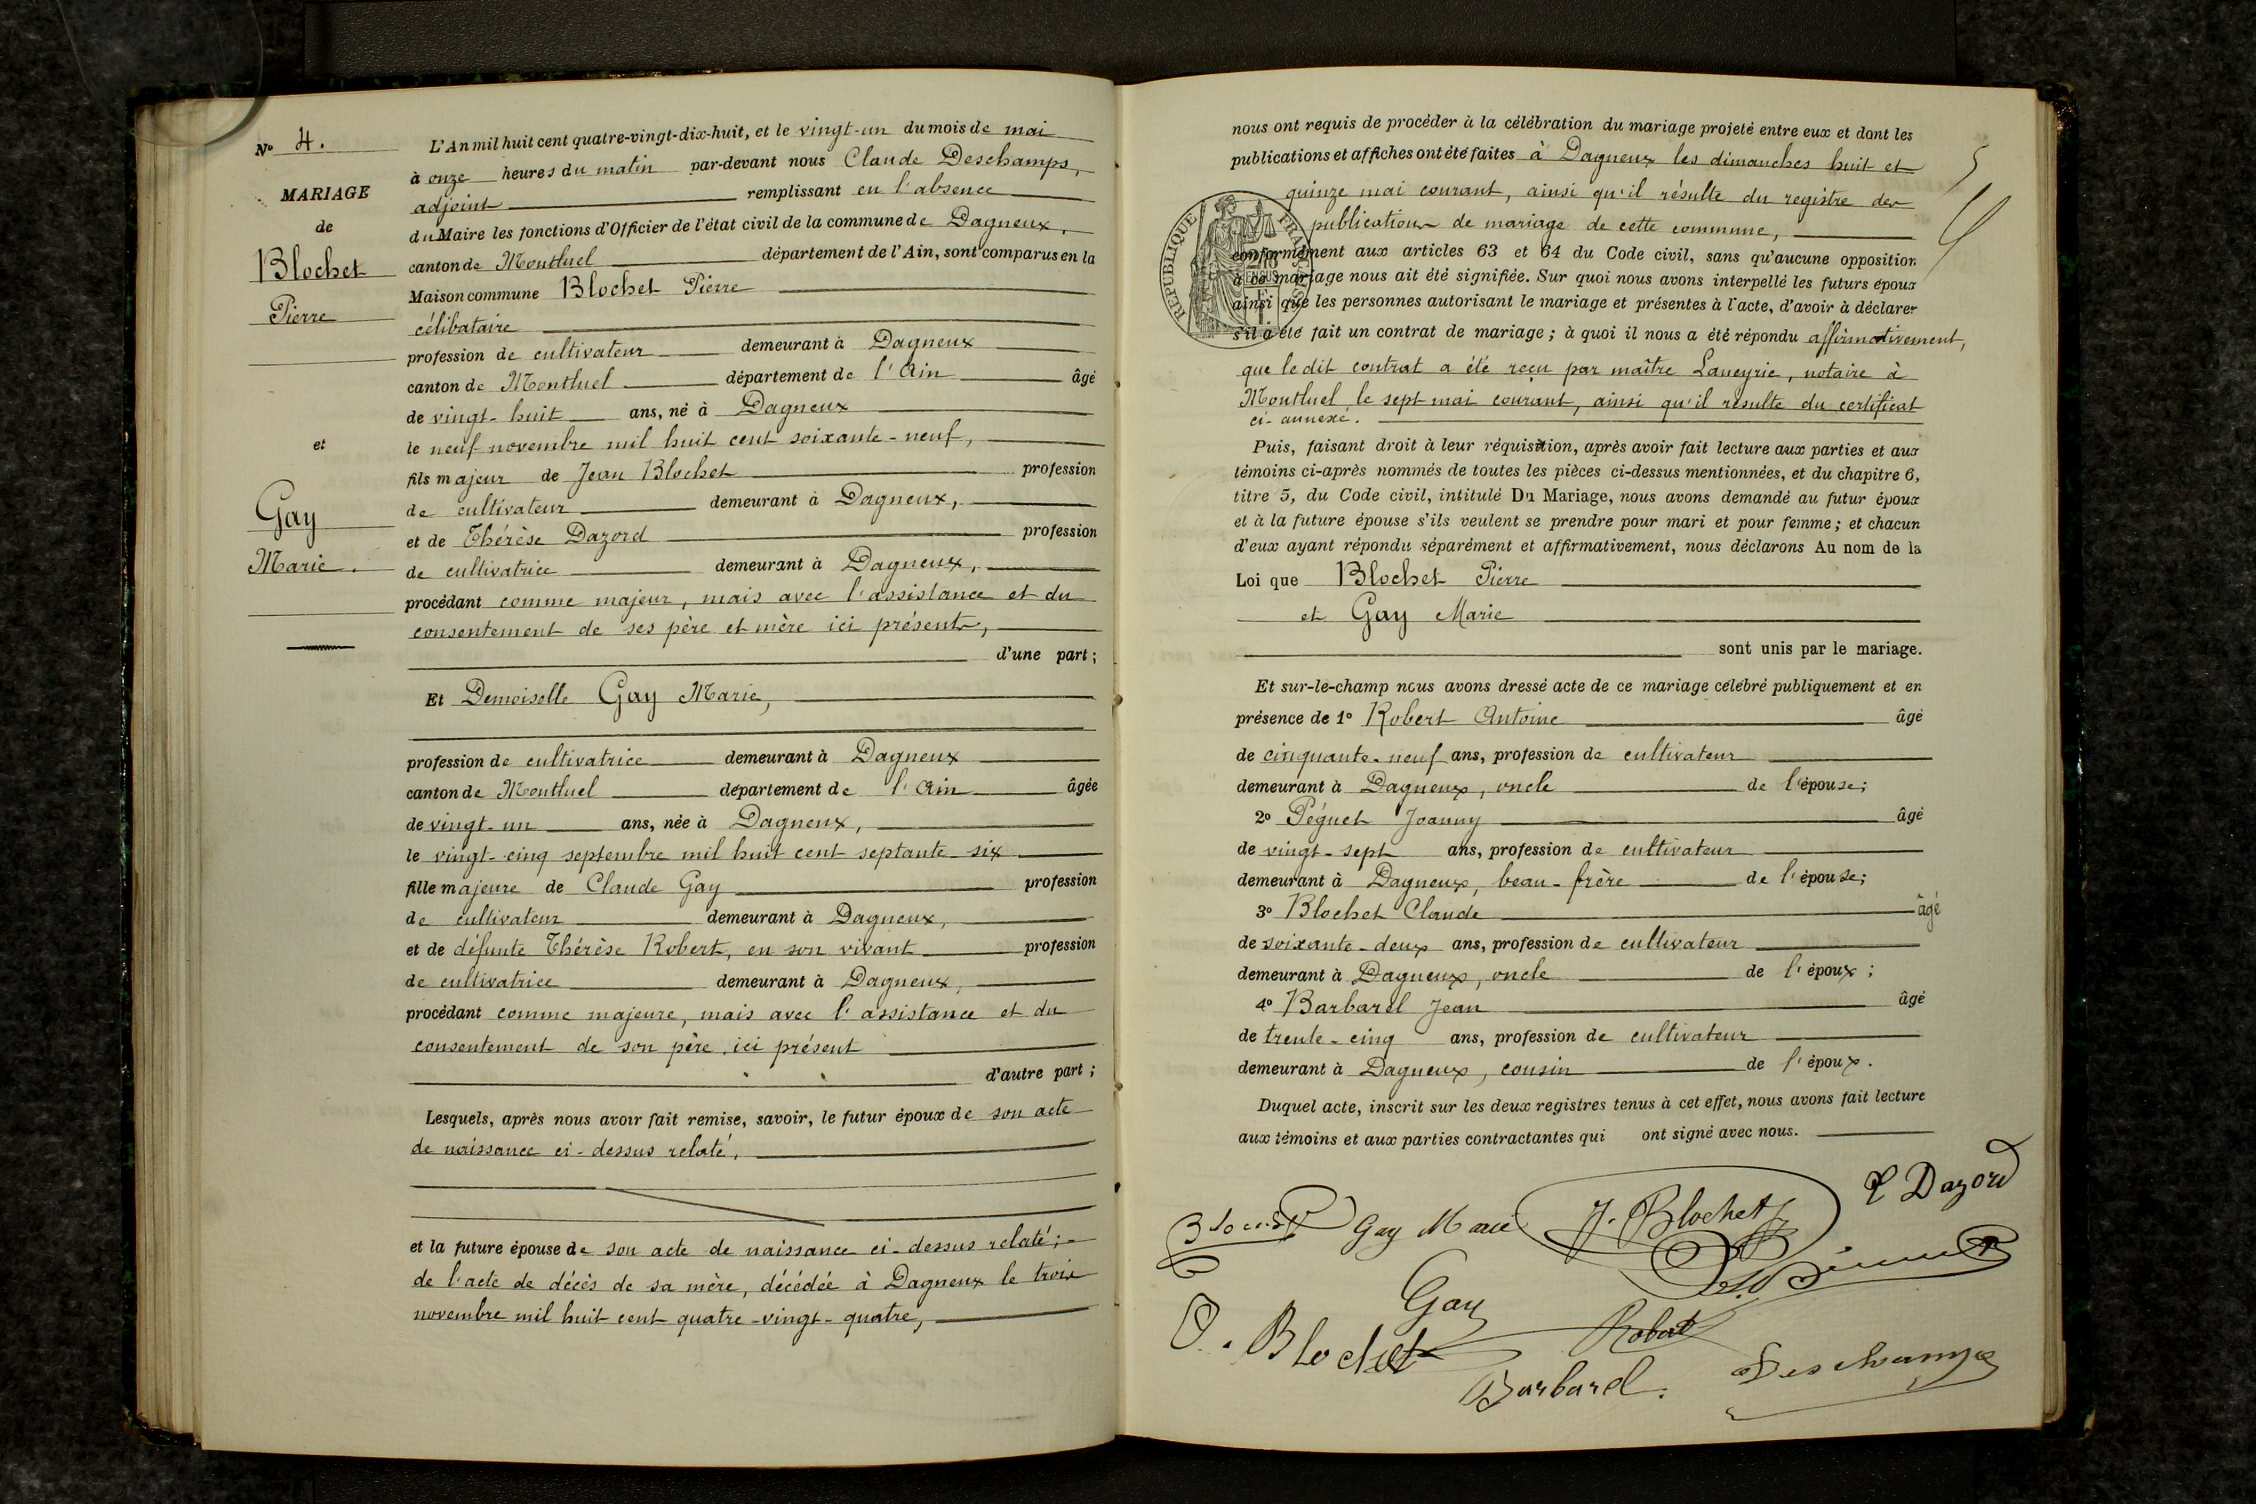 Nº 4.
MARIAGE
de
Blochet
Pierre
et
Gay
Marie.
L'An mil huit cent quatre-vingt-dix-huit, et le vingt-un du mois de mai
à onze heures du matin par-devant nous Claude Deschamps,
adjoint remplissant en l'absence
du Maire les fonctions d'Officier de l'état civil de la commune de Dagneux,
canton de Montluel département de l'Ain, sont comparus en la
Maison commune Blochet Pierre
célibataire
profession de cultivateur demeurant à Dagneux
canton de Montluel département de l'Ain âgé
de vingt-huit ans, né à Dagneux
le neuf novembre mil huit cent soixante-neuf,
fils majeur de Jean Blochet profession
de cultivateur demeurant à Dagneux,
et de Thérèse Dazord profession
de cultivatrice demeurant à Dagneux,
procédant comme majeur, mais avec l'assistance et du
consentement de ses père et mère ici présents,
d'une part;
Et Demoiselle Gay Marie,
profession de cultivatrice demeurant à Dagneux
canton de Montluel département de l'Ain âgée
de vingt-un ans, née à Dagneux,
le vingt-cinq septembre mil huit cent septante-six
fille majeure de Claude Gay profession
de cultivateur demeurant à Dagneux,
et de défunte Thérèse Robert, en son vivant profession
de cultivatrice demeurant à Dagneux,
procédant comme majeure, mais avec l'assistance et du
consentement de son père ici présent
d'autre part;
Lesquels, après nous avoir fait remise, savoir, le futur époux de son acte
de naissance ci-dessus relaté,
et la future épouse de son acte de naissance ci-dessus relaté;
de l'acte de décès de sa mère, décédée à Dagneux le trois
novembre mil huit cent quatre-vingt-quatre,
nous ont requis de procéder à la célébration du mariage projeté entre eux et dont les
publications et affiches ont été faites à Dagneux les dimanches huit et
quinze mai courant, ainsi qu'il résulte du registre des
publications de mariage de cette commune,
conformément aux articles 63 et 64 du Code civil, sans qu'aucune opposition
à ce mariage nous ait été signifiée. Sur quoi nous avons interpellé les futurs époux
ainsi que les personnes autorisant le mariage et présentes à l'acte, d'avoir à déclarer
s'il a été fait un contrat de mariage; à quoi il nous a été répondu affirmativement,
que le dit contrat a été reçu par maître Laneyrie, notaire à
Montluel le sept mai courant, ainsi qu'il résulte du certificat
ci-annexé.
Puis, faisant droit à leur réquisition, après avoir fait lecture aux parties et aux
témoins ci-après nommés de toutes les pièces ci-dessus mentionnées, et du chapitre 6,
titre 5, du Code civil, intitulé Du Mariage, nous avons demandé au futur époux
et à la future épouse s'ils veulent se prendre pour mari et pour femme; et chacun
d'eux ayant répondu séparément et affirmativement, nous déclarons Au nom de la
Loi que Blochet Pierre
et Gay Marie
sont unis par le mariage.
Et sur-le-champ nous avons dressé acte de ce mariage célébré publiquement et en
présence de 1º Robert Antoine âgé
de cinquante-neuf ans, profession de cultivateur
demeurant à Dagneux, oncle de l'épouse;
2º Péguet Joanny âgé
de vingt-sept ans, profession de cultivateur
demeurant à Dagneux, beau-frère de l'épouse;
3º Blochet Claude âgé
de soixante-deux ans, profession de cultivateur
demeurant à Dagneux, oncle de l'époux;
4º Barbarel Jean âgé
de trente-cinq ans, profession de cultivateur
demeurant à Dagneux, cousin de l'époux.
Duquel acte, inscrit sur les deux registres tenus à cet effet, nous avons fait lecture
aux témoins et aux parties contractantes qui ont signé avec nous.
RÉPUBLIQUE FRANÇAISE
Gay Marie J. Blochet Dazord
Gay
Blochet Robert
Barbarel. Deschamps